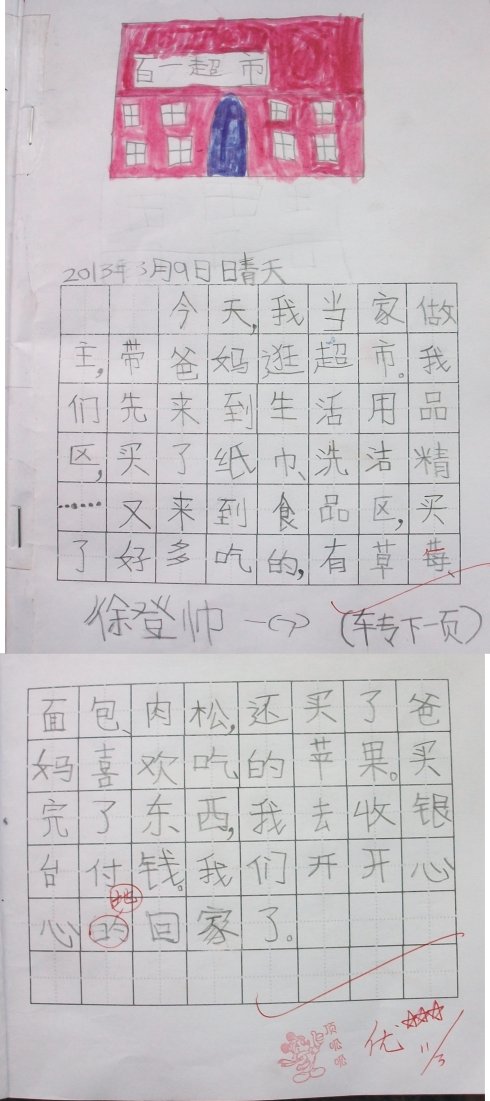 百一超市
2013年3月9日 晴天
今天,我当家做
主,带爸妈逛超市。我
们先来到生活用品
区,买了纸巾、洗洁精
……又来到食品区,买
了好多吃的,有草莓、
徐登帅 一(7) (车专下一页)
面包、肉松,还买了爸
妈喜欢吃的苹果。买
完了东西,我去收银
台付钱。我们开开心
地
心的回家了。
顶呱呱
优 11/3